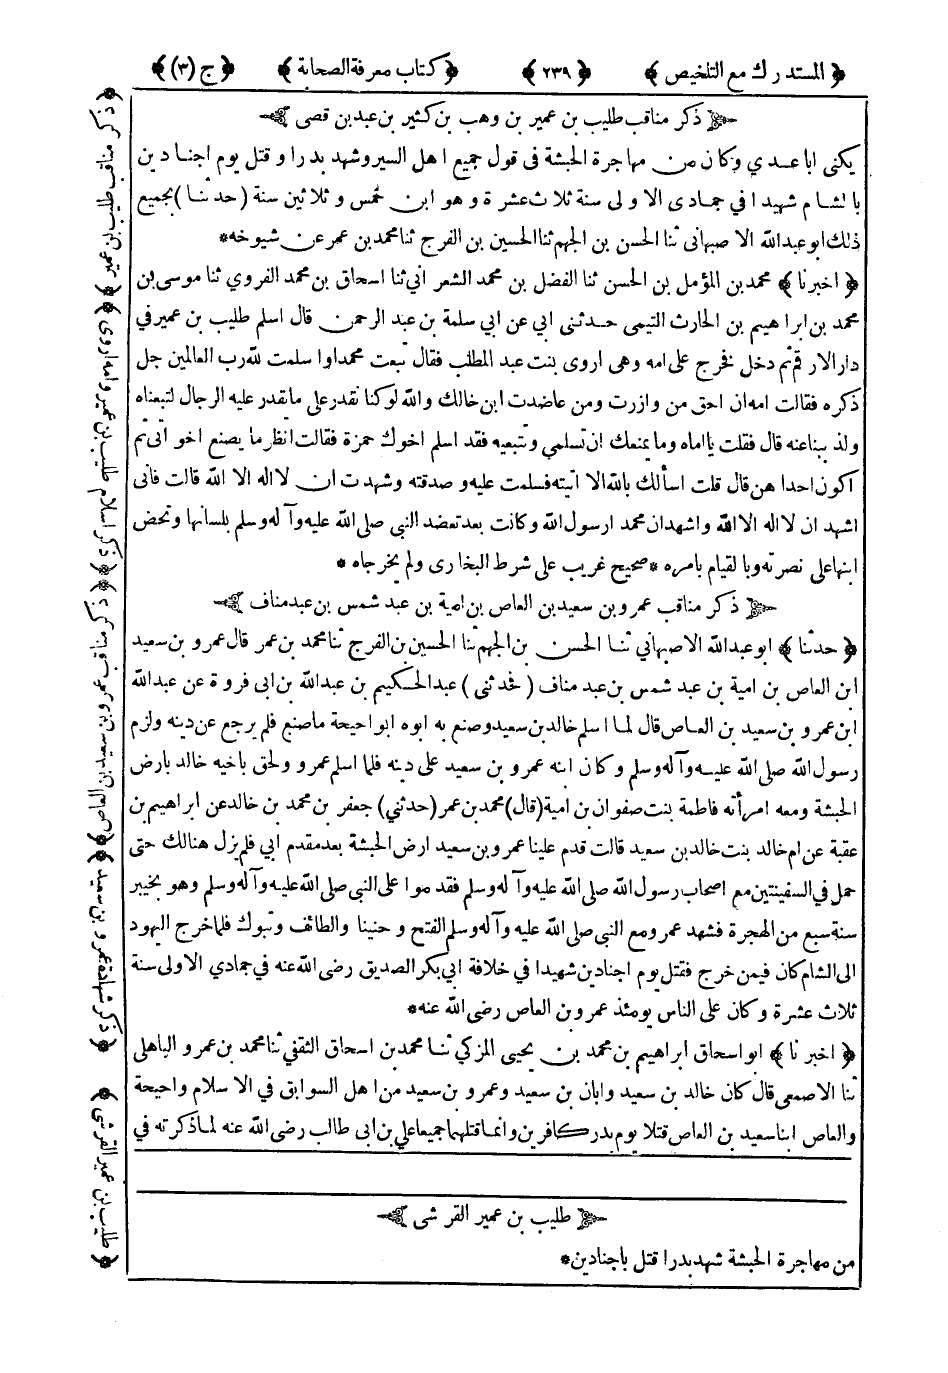 ﴿ المستدرك مع التلخيص ﴾ ﴿ ٢٣٩ ﴾ ﴿ كتاب معرفة الصحابة ﴾ ﴿ ج (٣) ﴾
ذكر مناقب طليب بن عمير بن وهب بن كثير بن عبد بن قصى
يكنى ابا عدي وكان من مهاجرة الحبشة فى قول جميع اهل السير وشهد بدرا وقتل يوم اجنادين
بالشام شهيدا في جمادى الاولى سنة ثلاث عشرة وهو ابن خمس وثلاثين سنة (حدثنا) بجميع
ذلك ابو عبدالله الاصبهانى ثنا الحسن بن الجهم ثنا الحسين بن الفرج ثنا محمد بن عمر عن شيوخه*
﴿ اخبرنا ﴾ محمد بن المؤمل بن الحسن ثنا الفضل بن محمد الشعراني ثنا اسحاق بن محمد الفروي ثنا موسى بن
محمد بن ابراهيم بن الحارث التيمى حدثنى ابي عن ابي سلمة بن عبد الرحمن قال اسلم طليب بن عمير في
دار الارقم ثم دخل فخرج على امه وهى اروى بنت عبد المطلب فقال تبعت محمدا واسلمت لله رب العالمين جل
ذكره فقالت امه ان احق من وازرت ومن عاضدت ابن خالك والله لو كنا نقدر على ما يقدر عليه الرجال لتبعناه
ولذ ببنا عنه قال فقلت يا اماه وما يمنعك ان تسلمي وتتبعيه فقد اسلم اخوك حمزة فقالت انظر ما يصنع اخواتى ثم
اكون احدا هن قال قلت اسألك بالله الا اتيته فسلمت عليه وصدقته وشهدت ان لا اله الا الله قالت فانى
اشهد ان لا اله الا الله واشهد ان محمدا رسول الله وكانت بعد تعضد النبي صلى الله عليه وآله وسلم بلسانها وتحض
ابنها على نصرته وبالقيام بامره *صحيح غريب على شرط البخارى ولم يخرجاه *
ذكر مناقب عمرو بن سعيد بن العاص بن امية بن عبد شمس بن عبد مناف
﴿ حدثنا ﴾ ابو عبدالله الاصبهاني ثنا الحسن بن الجهم ثنا الحسين بن الفرج ثنا محمد بن عمر قال عمرو بن سعيد
ابن العاص بن امية بن عبد شمس بن عبد مناف (فحدثنى) عبدالحكيم بن عبدالله بن ابى فروة عن عبدالله
ابن عمرو بن سعيد بن العاص قال لما اسلم خالد بن سعيد وصنع به ابوه ابو احيحة ما صنع فلم يرجع عن دينه ولزم
رسول الله صلى الله عليه وآله وسلم وكان ابنه عمرو بن سعيد على دينه فلما اسلم عمرو ولحق باخيه خالد بارض
الحبشة ومعه امرأته فاطمة بنت صفوان بن امية (قال) محمد بن عمر (حدثني) جعفر بن محمد بن خالد عن ابراهيم بن
عقبة عن ام خالد بنت خالد بن سعيد قالت قدم علينا عمرو بن سعيد ارض الحبشة بعد مقدم ابي فلم يزل هنالك حتى
حمل في السفينتين مع اصحاب رسول الله صلى الله عليه وآله وسلم فقدموا على النبي صلى الله عليه وآله وسلم وهو بخيبر
سنة سبع من الهجرة فشهد عمرو مع النبي صلى الله عليه وآله وسلم الفتح وحنينا والطائف وتبوك فلما خرج اليهود
الى الشام كان فيمن خرج فقتل يوم اجنادين شهيدا في خلافة ابي بكر الصديق رضى الله عنه في جمادي الاولى سنة
ثلاث عشرة وكان على الناس يومئذ عمرو بن العاص رضى الله عنه*
﴿ اخبرنا ﴾ ابو اسحاق ابراهيم بن محمد بن يحيى المزكي ثنا محمد بن اسحاق الثقفي ثنا محمد بن عمرو الباهلى
ثنا الاصمعى قال كان خالد بن سعيد وابان بن سعيد وعمرو بن سعيد من اهل السوابق في الاسلام واحيحة
والعاص ابنا سعيد بن العاص قتلا يوم بدر كافرين وانما قتلهما جميعا علي بن ابى طالب رضى الله عنه لما ذكرته في
طليب بن عمير القرشى
من مهاجرة الحبشة شهد بدرا قتل باجنادين*
﴿ ذكر مناقب طليب بن عمير ﴾
﴿ ذكر اسلام طليب بن عمير وامه اروى ﴾
﴿ ذكر شهادة عمرو بن سعيد ﴾
﴿ طليب بن عمير القرشى ﴾